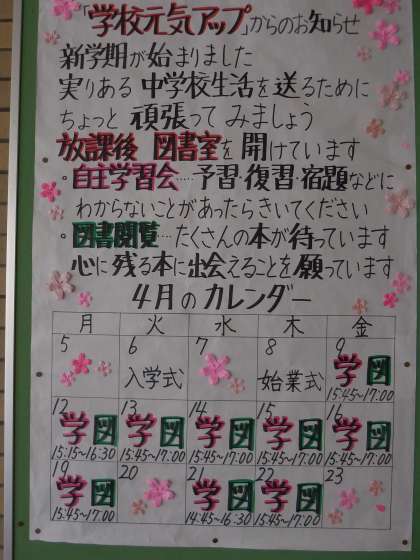 「学校元気アップ」からのお知らせ
新学期が始まりました
実りある 中学校生活を送るために
ちょっと 頑張って みましょう
放課後 図書室を 開けています
・自主学習会‥‥予習・復習・宿題などに
わからないことがあったらきいてください
・図書閲覧‥‥たくさんの本が待っています
心に残る本に出会えることを願っています
4月のカレンダー
月 火 水 木 金
5 6 7 8 9
入学式 始業式 学図
15:45~17:00
12 13 14 15 16
学図 学図 学図 学図 学図
15:15~16:30 15:45~17:00 15:45~17:00 15:45~17:00 15:45~17:00
19 20 21 22 23
学図 学図 学図
15:45~17:00 14:45~16:30 15:45~17:00